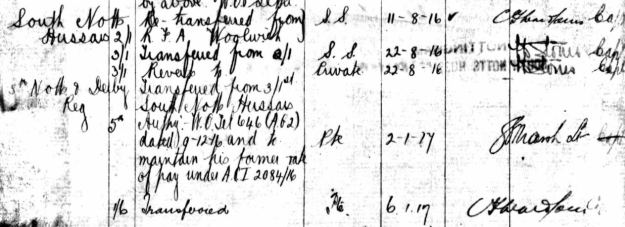 by above W.O. Lett
South Notts Re-transferred from S.S. 11-8-16 Capt
Hussars 2/1 R F A Woolwich
3/1 Transferred from 2/1 S.S 22-8-16 Jones Capt
3/1 Reverts to Private 22-8-16 Jones Capt
5th Notts & Derby Transferred from 3/1st
Reg South Notts Hussars
5th Authy. W.O. Let 646 (AG2)
dated 9-12-16 and to Pte 2-1-17 Marsh Lt
maintain his former rate
of pay under A.C.I 2084/16
1/6 Transferred Pte. 6.1.17